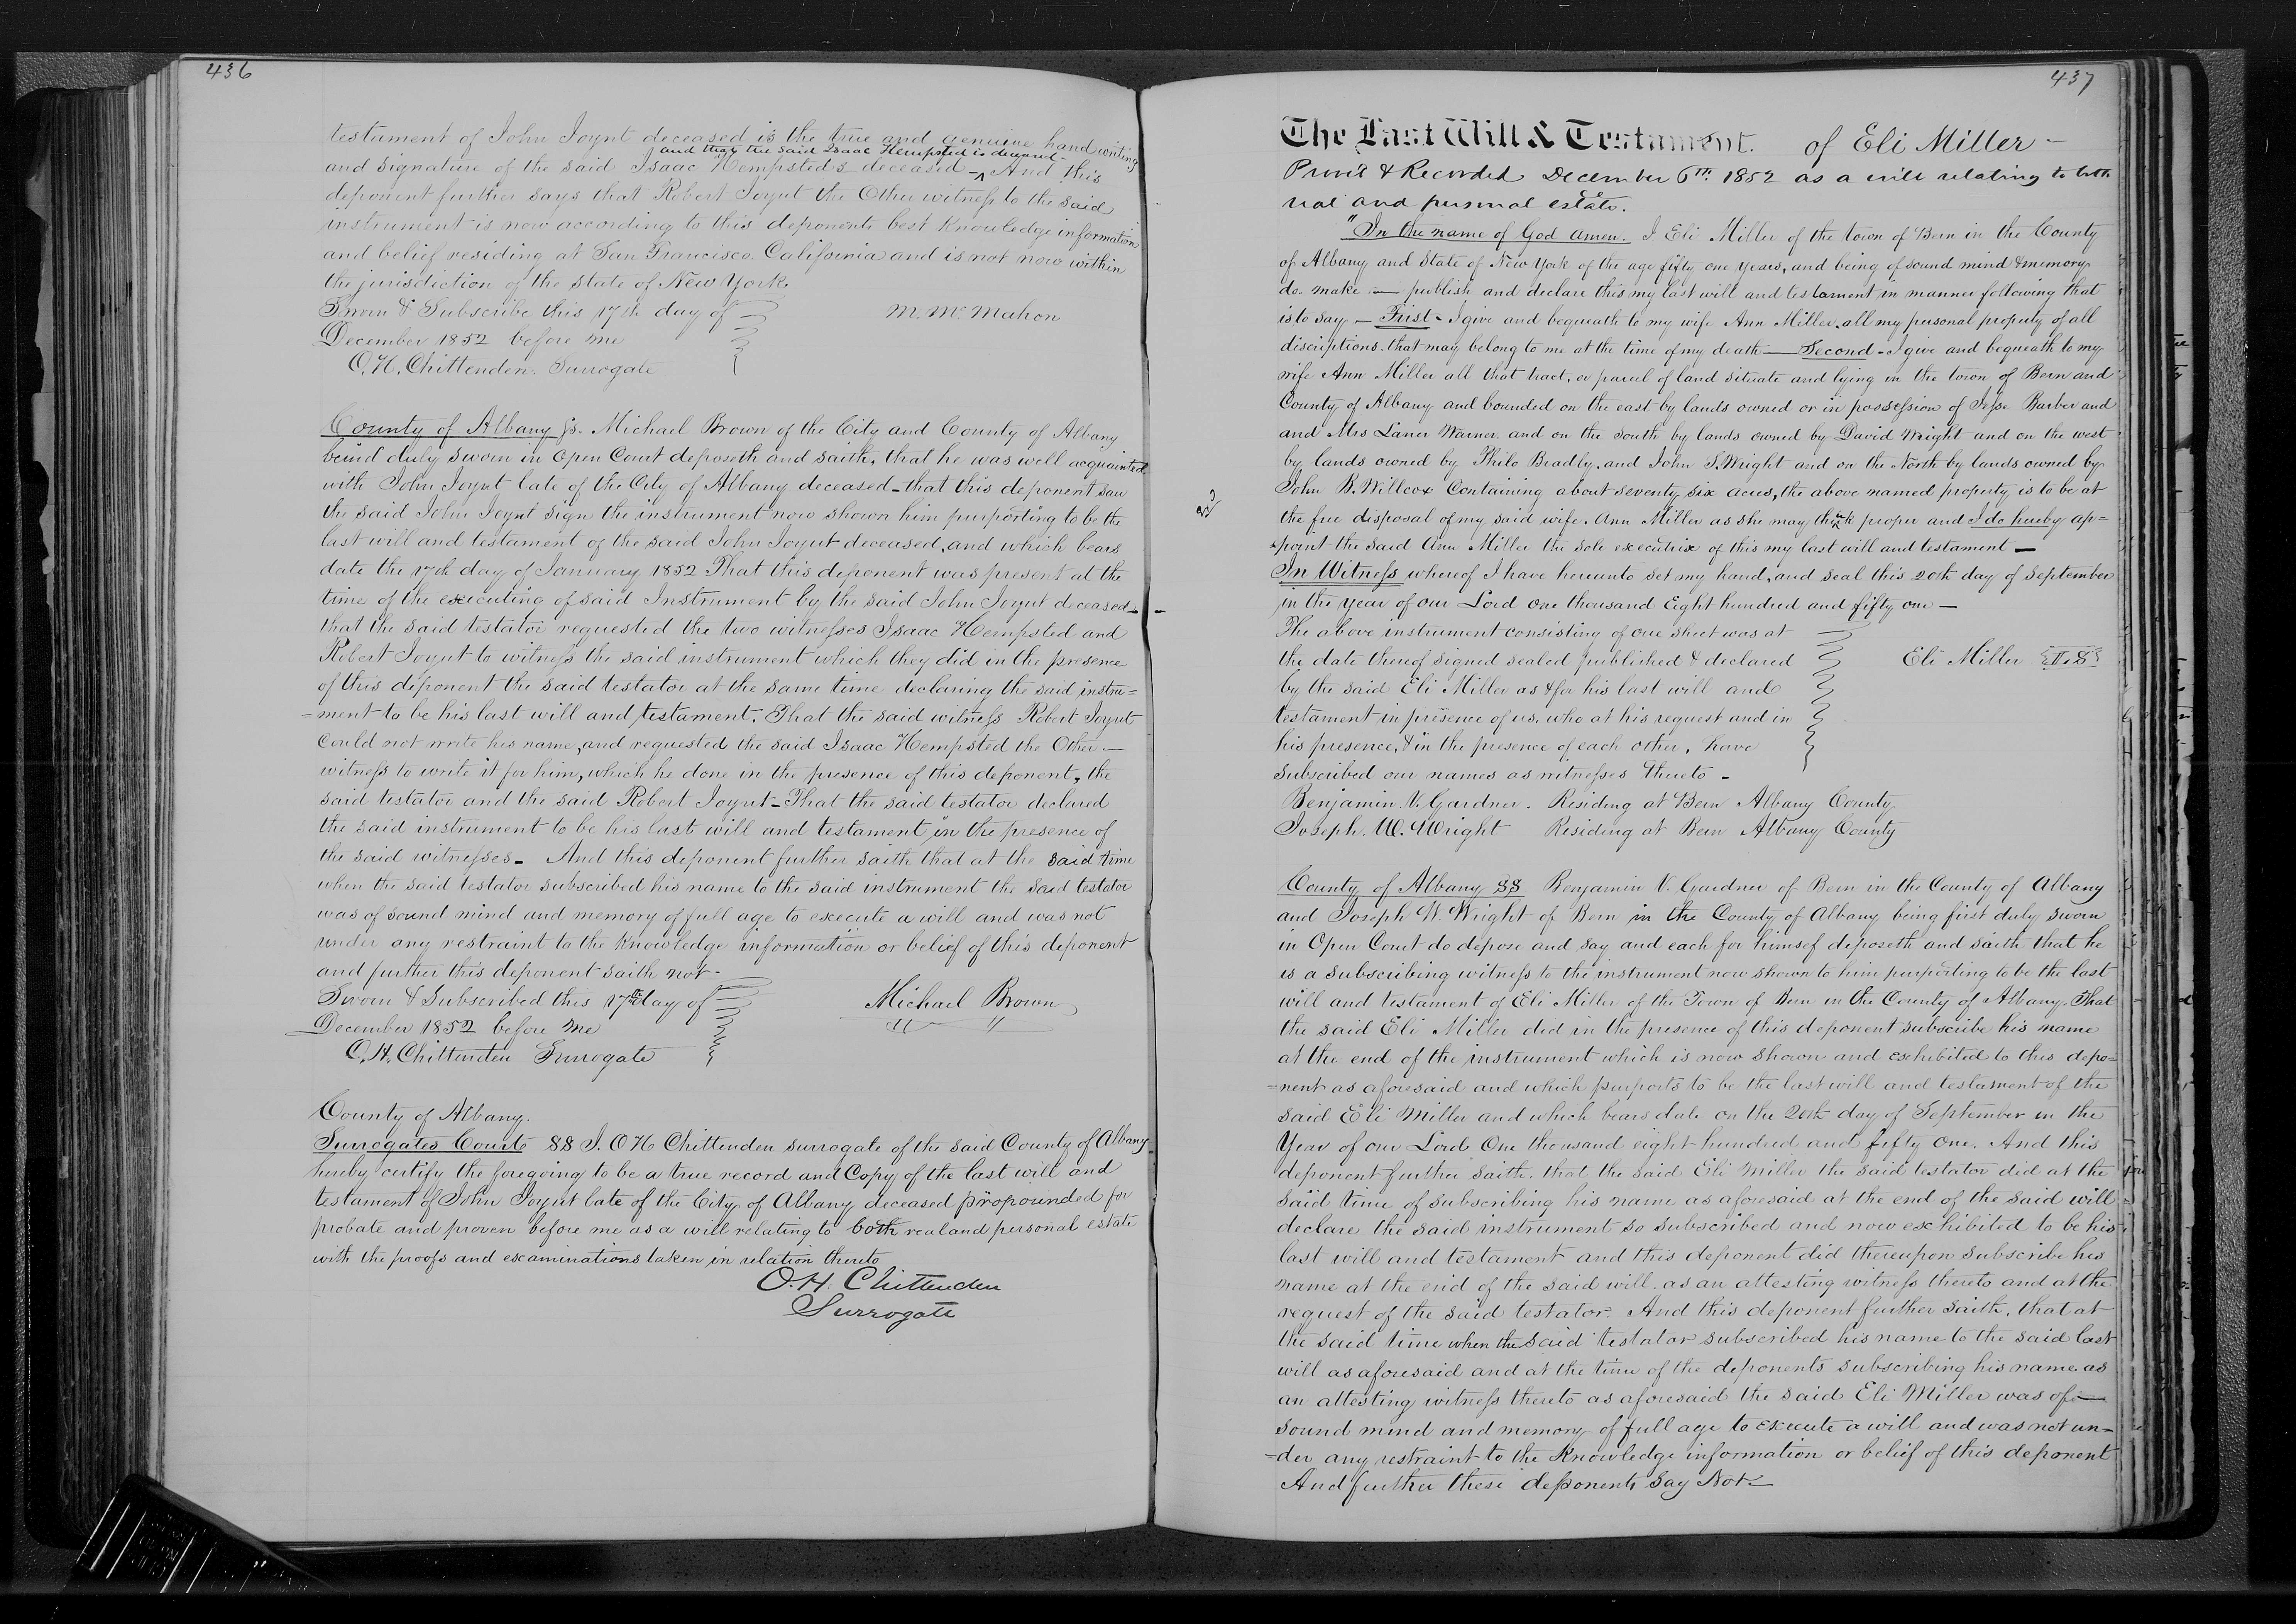 436
testament of John Joynt deceased is the true and genuine hand writing
and that the said Isaac Hempsted is deceased
and signature of the said Isaac Hempsted's deceased - ^ And this
deponent further says that Robert Joynt the Other witness to the said
instrument is now according to this deponents best Knowledge information
and belief residing at San Francisco California and is not now within
the jurisdiction of the state of New York.
Sworn & Subscribe this 17th day of
December 1852 before me
M. Mc Mahon
O. H. Chittenden. Surrogate
County of Albany ss. Michael Brown of the City and County of Albany
being duly sworn in Open Court deposeth and saith, that he was well acquainted
with John Joynt late of the City of Albany deceased - that this deponent saw
the said John Joynt sign the instrument now shown him purporting to be the
last will and testament of the said John Joynt deceased, and which bears
date the 17th day of January 1852 That this deponent was present at the
time of the executing of said Instrument by the said John Joynt deceased -
that the said testator requested the two witnesses Isaac Hempsted and
Robert Joynt to witness the said instrument which they did in the presence
of this deponent the said testator at the same time declaring the said instru=
=ment to be his last will and testament. That the said witness Robert Joynt
Could not write his name, and requested the said Isaac Hempsted the Other —
witness to write it for him, which he done in the presence of this deponent, the
said testator and the said Robert Joynt - That the said testator declared
the said instrument to be his last will and testament in the presence of
the said witnesses - And this deponent further saith that at the said time
when the said testator subscribed his name to the said instrument the said testator
was of sound mind and memory of full age to execute a will and was not
under any restraint to the Knowledge information or belief of this deponent
and further this deponent saith not -
Sworn & Subscribed this 17th day of
December 1852 before me
Michael Brown
O. H. Chittenden Surrogate
County of Albany.
Surrogates Courts SS I. O H Chittenden surrogate of the said County of Albany
hereby certify the foregoing to be a true record and Copy of the last will and
testament of John Joynt late of the City of Albany deceased propounded for
probate and proven before me as a will relating to both real and personal estate
with the proofs and examinations taken in relation thereto
O. H. Chittenden
Surrogate
437
The Last Will & Testament. of Eli Miller —
Prov'd & Recorded December 6th 1852 as a will relating to both
real and personal estate.
"In the name of God amen. I Eli Miller of the town of Bern in the County
of Albany and State of New York of the age fifty one years, and being of sound mind & memory
do make — publish and declare this my last will and testament in manner following that
is to say — First - I give and bequeath to my wife Ann Miller all my personal property of all
discriptions that may belong to me at the time of my death — Second - I give and bequeath to my
wife Ann Miller all that tract, or parcel of land situate and lying in the town of Bern and
County of Albany and bounded on the east by lands owned or in possession of Jesse Barber and
and Mrs Laner Warner and on the South by lands owned by David Wright and on the west
by lands owned by Philo Bradby, and John S. Wright and on the North by lands owned by
John B. Willcox Containing about seventy six acres, the above named property is to be at
the free disposal of my said wife. Ann Miller as she may think proper and I do hereby ap=
=point the said Ann Miller the sole executrix of this my last will and testament —
In Witness whereof I have hereunto set my hand, and seal this 20th day of September
in the year of our Lord one thousand Eight hundred and fifty one —
The above instrument consisting of one sheet was at
the date thereof signed sealed published & declared
Eli Miller L. S
by the said Eli Miller as & for his last will and
testament in presence of us. who at his request and in
his presence, & in the presence of each other, have
subscribed our names as witnesses thereto -
Benjamin V. Gardner. Residing at Bern Albany County
Joseph. W. Wright Residing at Bern Albany County
County of Albany SS Benjamin V. Gardner of Bern in the County of Albany
and Joseph W. Wright of Bern in the County of Albany being first duly sworn
in Open Court do depose and say and each for himsef deposeth and saith that he
is a subscribing witness to the instrument now shown to him purporting to be the last
will and testament of Eli Miller of the Town of Bern in the County of Albany. That
the said Eli Miller did in the presence of this deponent subscribe his name
at the end of the instrument which is now shown and exhibited to this depo=
=nent as aforesaid and which purports to be the last will and testament of the
said Eli Miller and which bears date on the 20th day of September in the
Year of our Lord One thousand eight hundred and fifty one. And this
deponent further saith. that the said Eli Miller the said testator did at the
said time of subscribing his name as aforesaid at the end of the said will
declare the said instrument so subscribed and now exhibited to be his
last will and testament and this deponent did thereupon subscribe his
name at the end of the said will. as an attesting witness thereto and at the
request of the said testator. And this deponent further saith. that at
the said time when the said testator subscribed his name to the said last
will as aforesaid and at the time of the deponents subscribing his name as
an attesting witness thereto as aforesaid the said Eli Miller was of —
sound mind and memory of full age to execute a will and was not un=
=der any restraint to the Knowledge information or belief of this deponent
And further these deponents say Not —